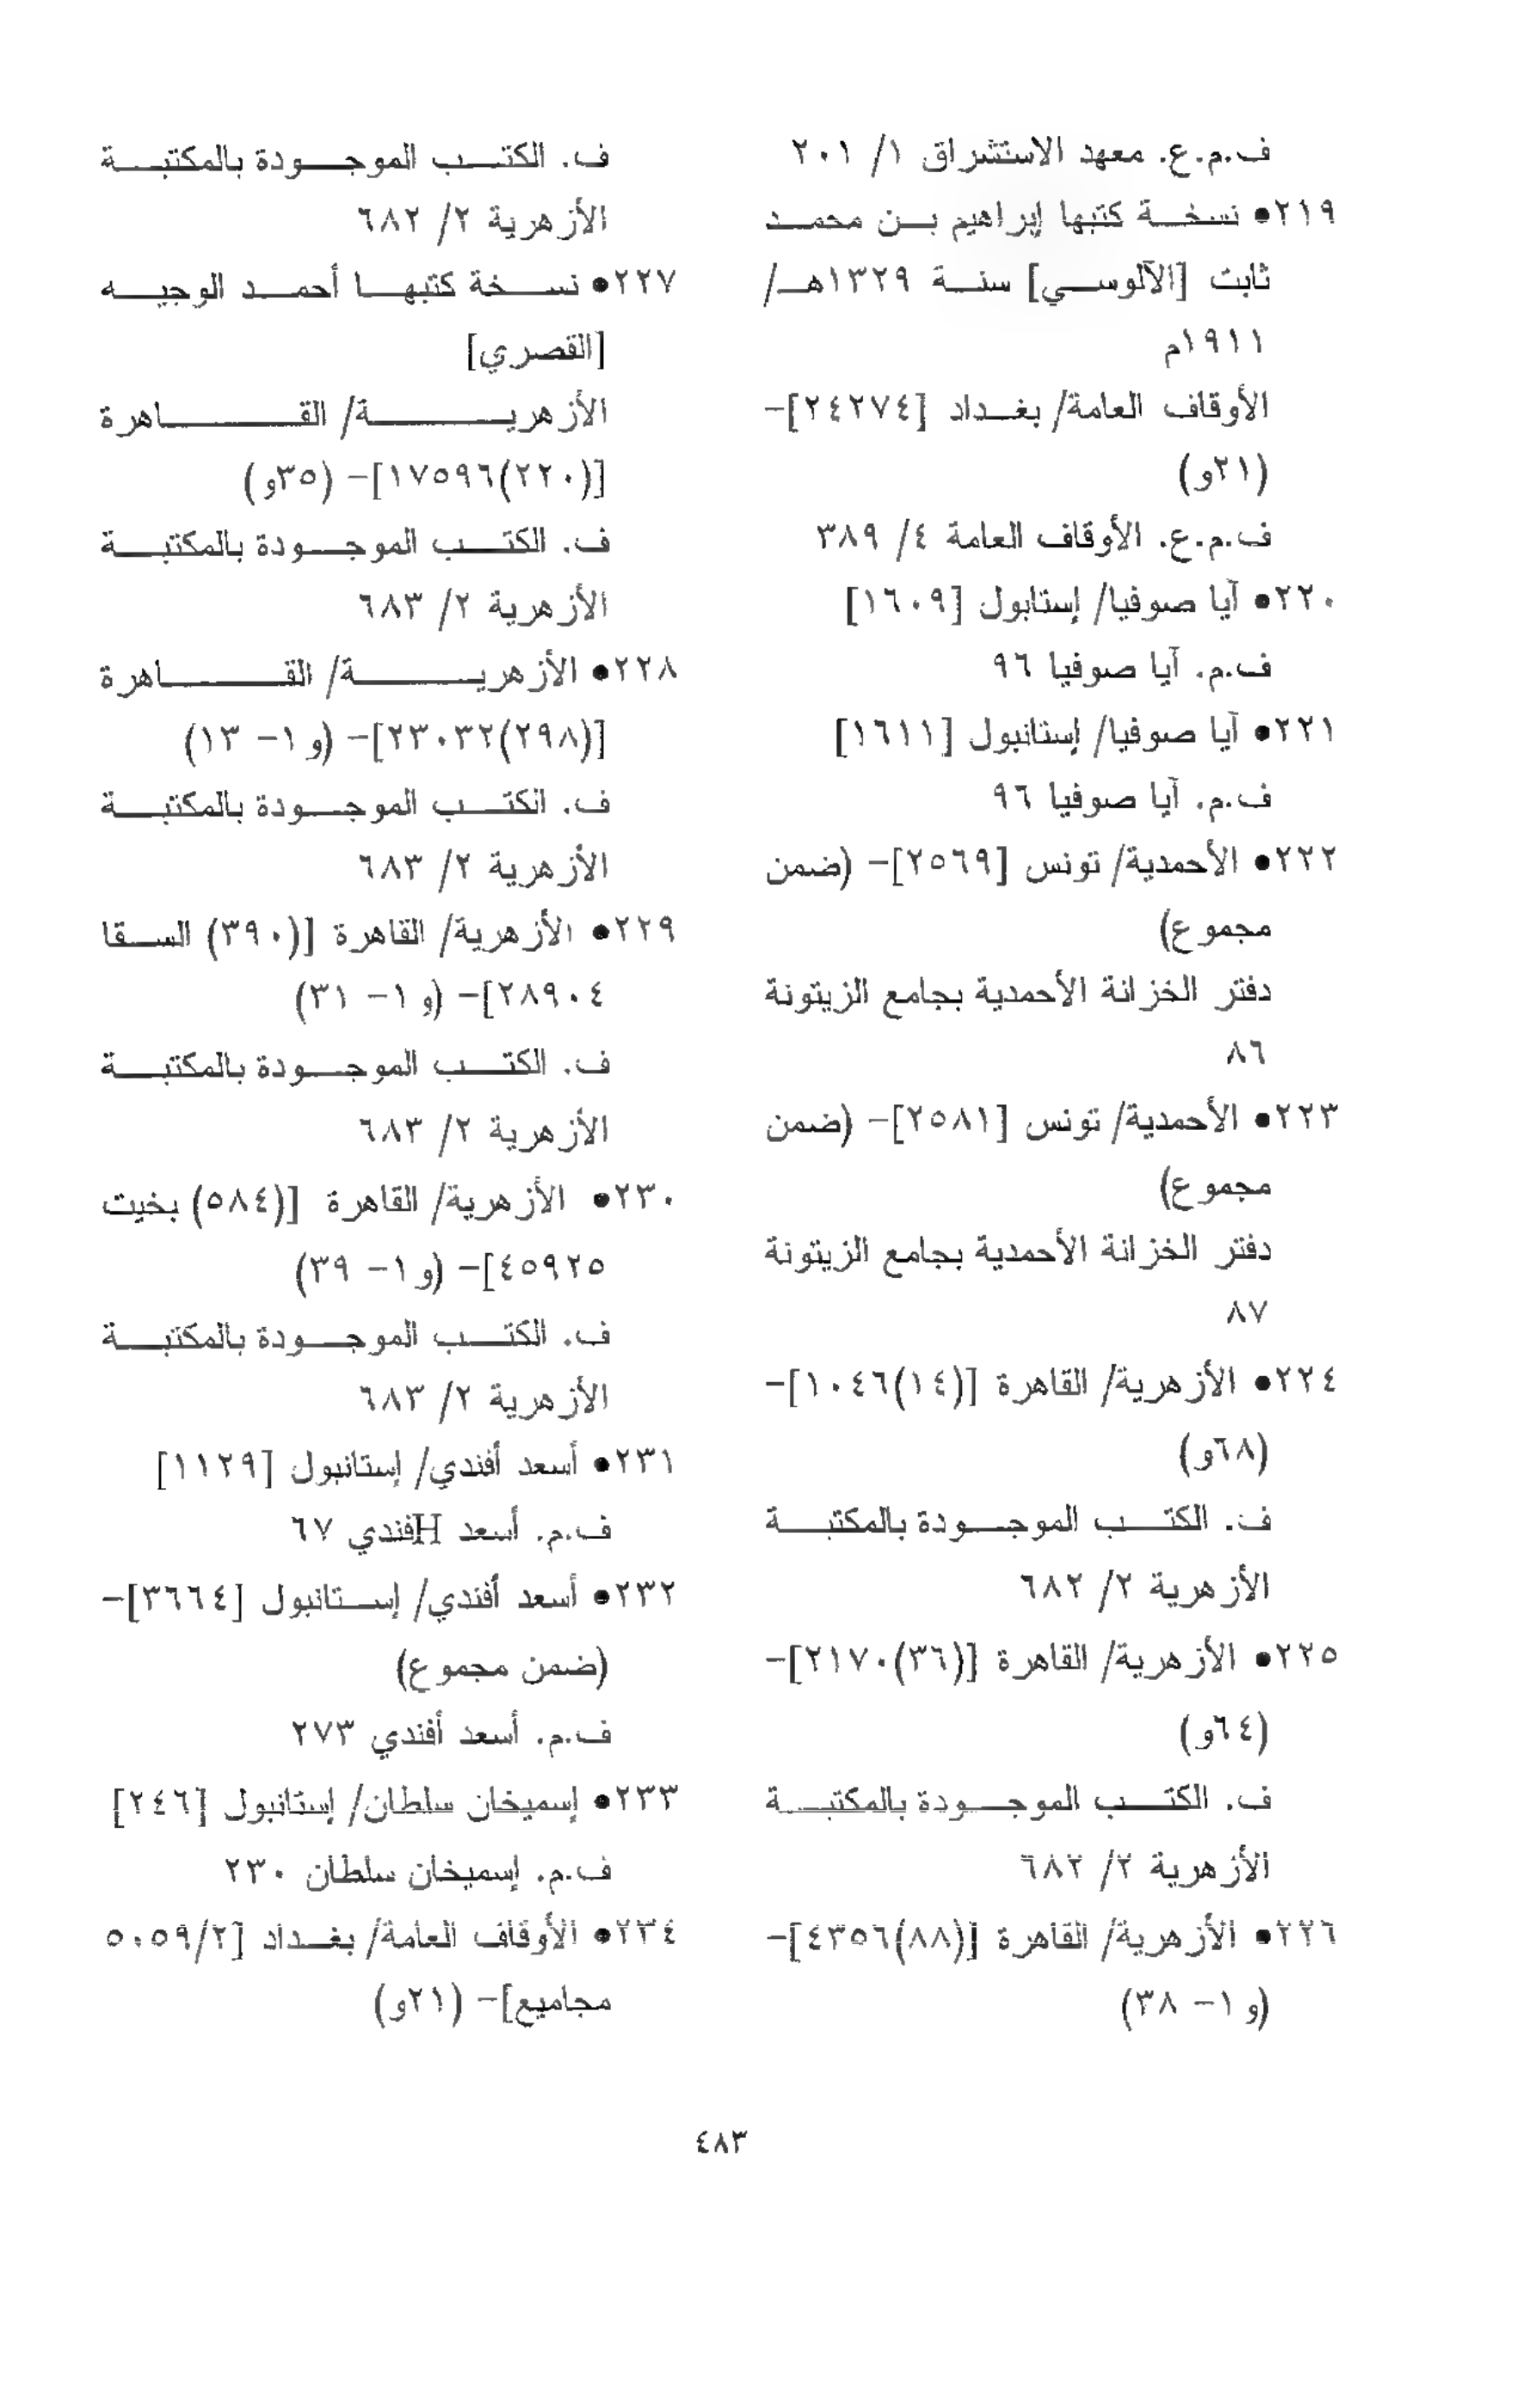 ف.م.ع. معهد الاستشراق ١/ ٢٠١
٢١٩● نسخة كتبها إبراهيم بن محمد
ثابت [الآلوسي] سنة ١٣٢٩هـ/
١٩١١م
الأوقاف العامة/ بغداد [٢٤٢٧٤]-
(٢١و)
ف.م.ع. الأوقاف العامة ٤/ ٣٨٩
٢٢٠● آيا صوفيا/ إستابول [١٦٠٩]
ف.م. آيا صوفيا ٩٦
٢٢١● آيا صوفيا/ إستانبول [١٦١١]
ف.م. آيا صوفيا ٩٦
٢٢٢● الأحمدية/ تونس [٢٥٦٩]- (ضمن
مجموع)
دفتر الخزانة الأحمدية بجامع الزيتونة
٨٦
٢٢٣● الأحمدية/ تونس [٢٥٨١]- (ضمن
مجموع)
دفتر الخزانة الأحمدية بجامع الزيتونة
٨٧
٢٢٤● الأزهرية/ القاهرة [(١٤)١٠٤٦]-
(٦٨و)
ف. الكتب الموجودة بالمكتبة
الأزهرية ٢/ ٦٨٢
٢٢٥● الأزهرية/ القاهرة [(٣٦)٢١٧٠]-
(٦٤و)
ف. الكتب الموجودة بالمكتبة
الأزهرية ٢/ ٦٨٢
٢٢٦● الأزهرية/ القاهرة [(٨٨)٤٣٥٦]-
(و ١- ٣٨)
ف. الكتب الموجودة بالمكتبة
الأزهرية ٢/ ٦٨٢
٢٢٧● نسخة كتبها أحمد الوجيه
[القصري]
الأزهرية/ القاهرة
[(٢٢٠)١٧٥٩٦]- (٣٥و)
ف. الكتب الموجودة بالمكتبة
الأزهرية ٢/ ٦٨٣
٢٢٨● الأزهرية/ القاهرة
[(٢٩٨)٢٣٠٣٢]- (و ١- ١٣)
ف. الكتب الموجودة بالمكتبة
الأزهرية ٢/ ٦٨٣
٢٢٩● الأزهرية/ القاهرة [(٣٩٠) السقا
٢٨٩٠٤]- (و ١- ٣١)
ف. الكتب الموجودة بالمكتبة
الأزهرية ٢/ ٦٨٣
٢٣٠● الأزهرية/ القاهرة [(٥٨٤) بخيت
٤٥٩٢٥]- (و ١- ٣٩)
ف. الكتب الموجودة بالمكتبة
الأزهرية ٢/ ٦٨٣
٢٣١● أسعد أفندي/ إستانبول [١١٢٩]
ف.م. أسعد Hفندي ٦٧
٢٣٢● أسعد أفندي/ إستانبول [٣٦٦٤]-
(ضمن مجموع)
ف.م. أسعد أفندي ٢٧٣
٢٣٣● إسميخان سلطان/ إستانبول [٢٤٦]
ف.م. إسميخان سلطان ٢٣٠
٢٣٤● الأوقاف العامة/ بغداد [٥٠٥٩/٢
مجاميع]- (٢١و)
٤٨٣